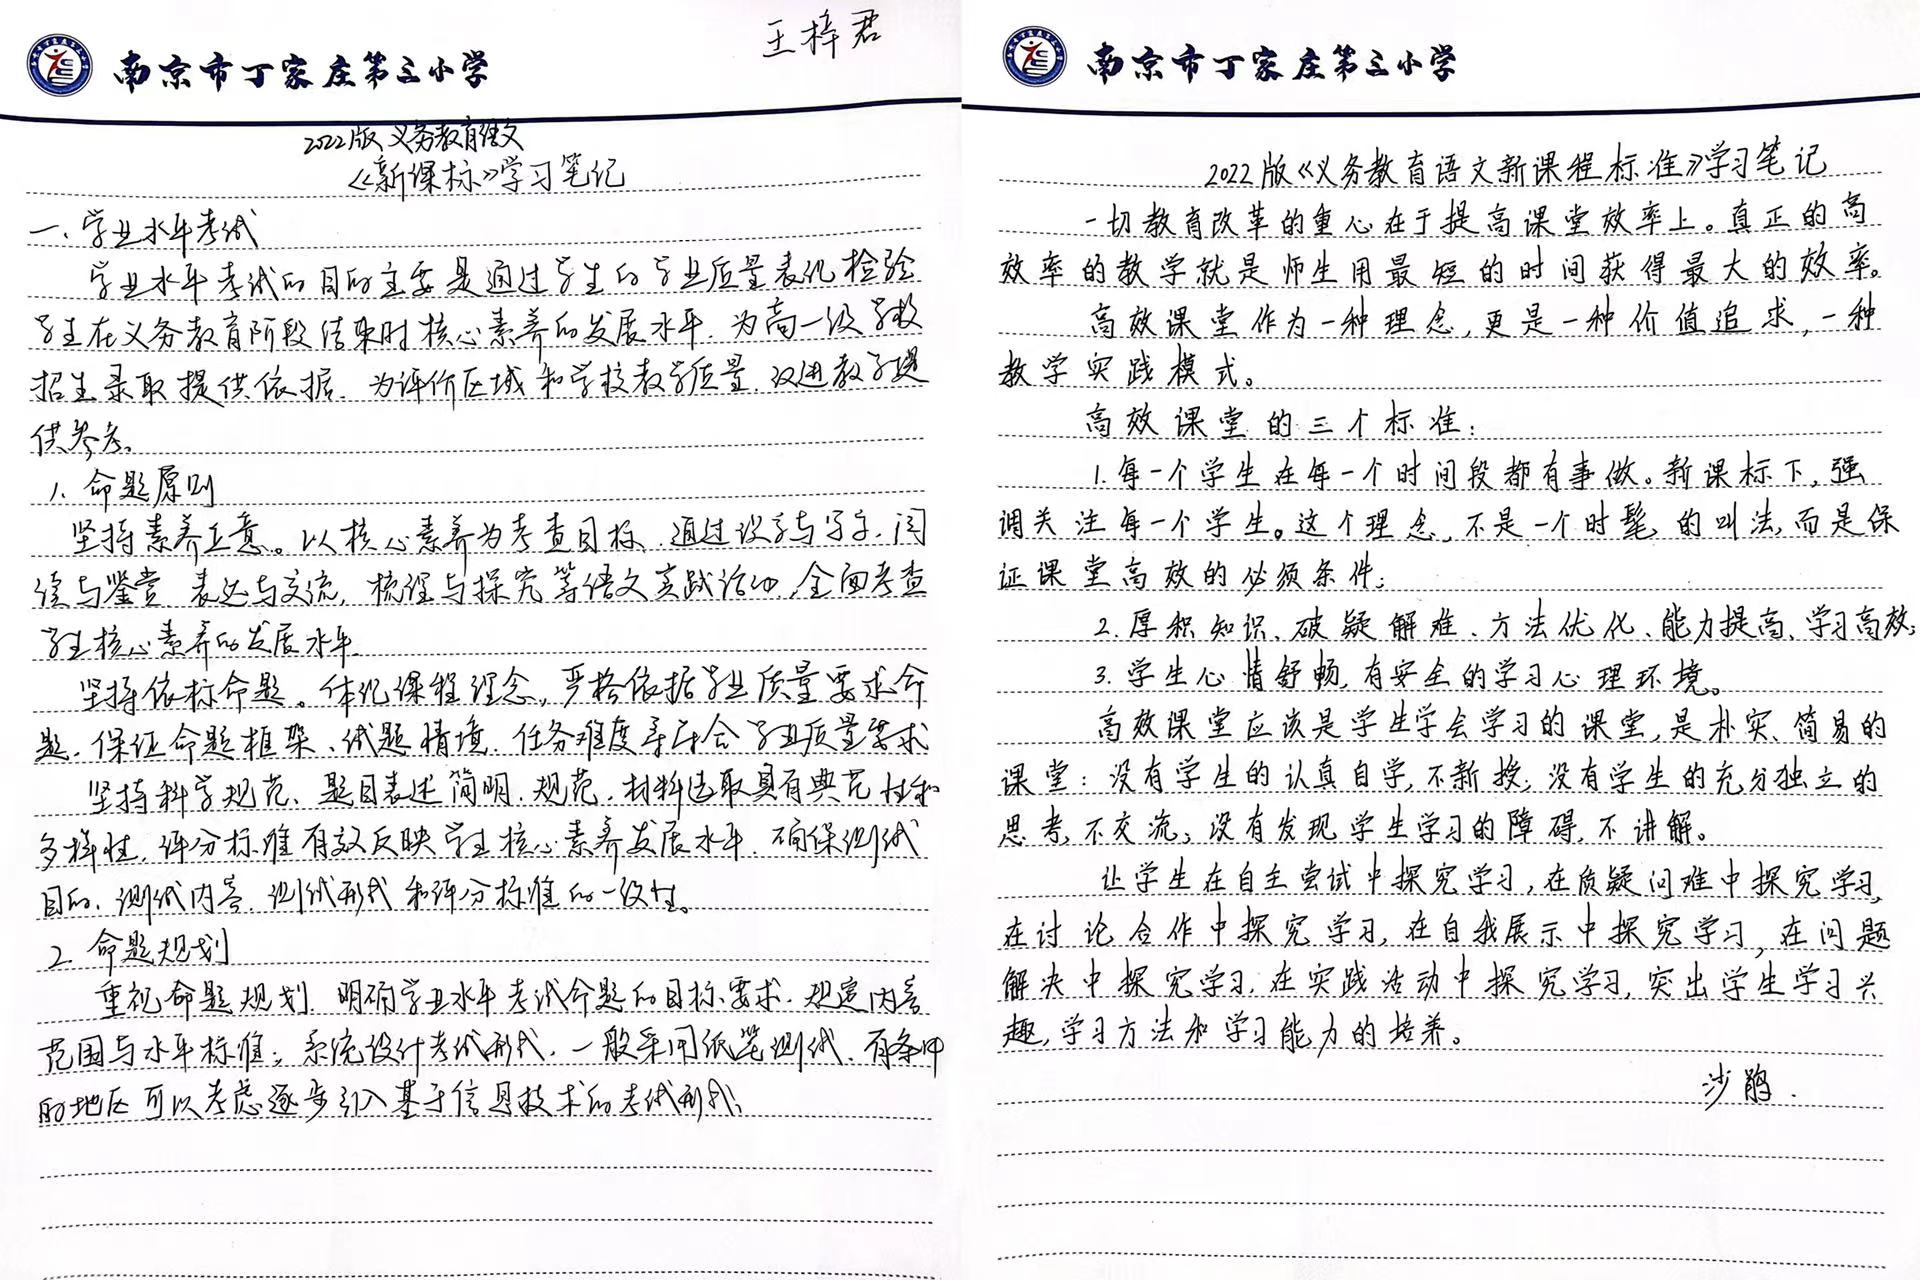 王梓君
南京市丁家庄第三小学
2022版义务教育语文
《新课标》学习笔记
一、学业水平考试
学业水平考试的目的主要是通过学生的学业质量表现检验
学生在义务教育阶段结束时核心素养的发展水平.为高一级学校
招生录取提供依据.为评价区域和学校教学质量.改进教学提
供参考。
1. 命题原则
坚持素养立意。以核心素养为考查目标.通过识字与写字.阅
读与鉴赏 表达与交流,梳理与探究等语文实践活动,全面考查
学生核心素养的发展水平.
坚持依标命题。体现课程理念,严格依据学业质量要求命
题.保证命题框架、试题情境.任务难度等符合学业质量要求
坚持科学规范、题目表述简明.规范.材料选取具有典范性和
多样性.评分标准有效反映学生核心素养发展水平.确保测试
目的、测试内容.测试形式和评分标准的一致性。
2. 命题规划
重视命题规划.明确学业水平考试命题的目标、要求.规定内容
范围与水平标准;系统设计考试形式.一般采用纸笔测试.有条件
的地区可以考虑逐步引入基于信息技术的考试形式;
南京市丁家庄第三小学
2022版《义务教育语文新课程标准》学习笔记
一切教育改革的重心在于提高课堂效率上。真正的高
效率的教学就是师生用最短的时间获得最大的效率。
高效课堂作为一种理念,更是一种价值追求,一种
教学实践模式。
高效课堂的三个标准:
1.每一个学生在每一个时间段都有事做。新课标下,强
调关注每一个学生。这个理念,不是一个时髦的叫法,而是保
证课堂高效的必须条件;
2.厚积知识、破疑解难、方法优化、能力提高、学习高效;
3.学生心情舒畅,有安全的学习心理环境。
高效课堂应该是学生学会学习的课堂,是朴实、简易的
课堂:没有学生的认真自学,不新授;没有学生的充分独立的
思考,不交流;没有发现学生学习的障碍,不讲解。
让学生在自主尝试中探究学习,在质疑问难中探究学习,
在讨论合作中探究学习,在自我展示中探究学习,在问题
解决中探究学习,在实践活动中探究学习,突出学生学习兴
趣,学习方法和学习能力的培养。
沙鹃.